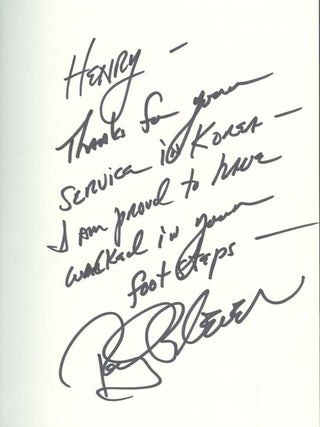 HENRY —
Thanks for your
SERVICE in KOREA —
I am proud to have
walked in your
foot steps —